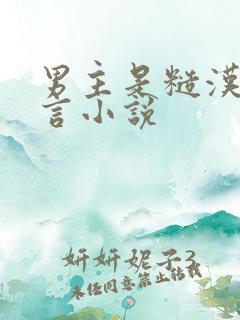 男主是糙漢
言小說
妍妍妮子3
未经同意禁止转载